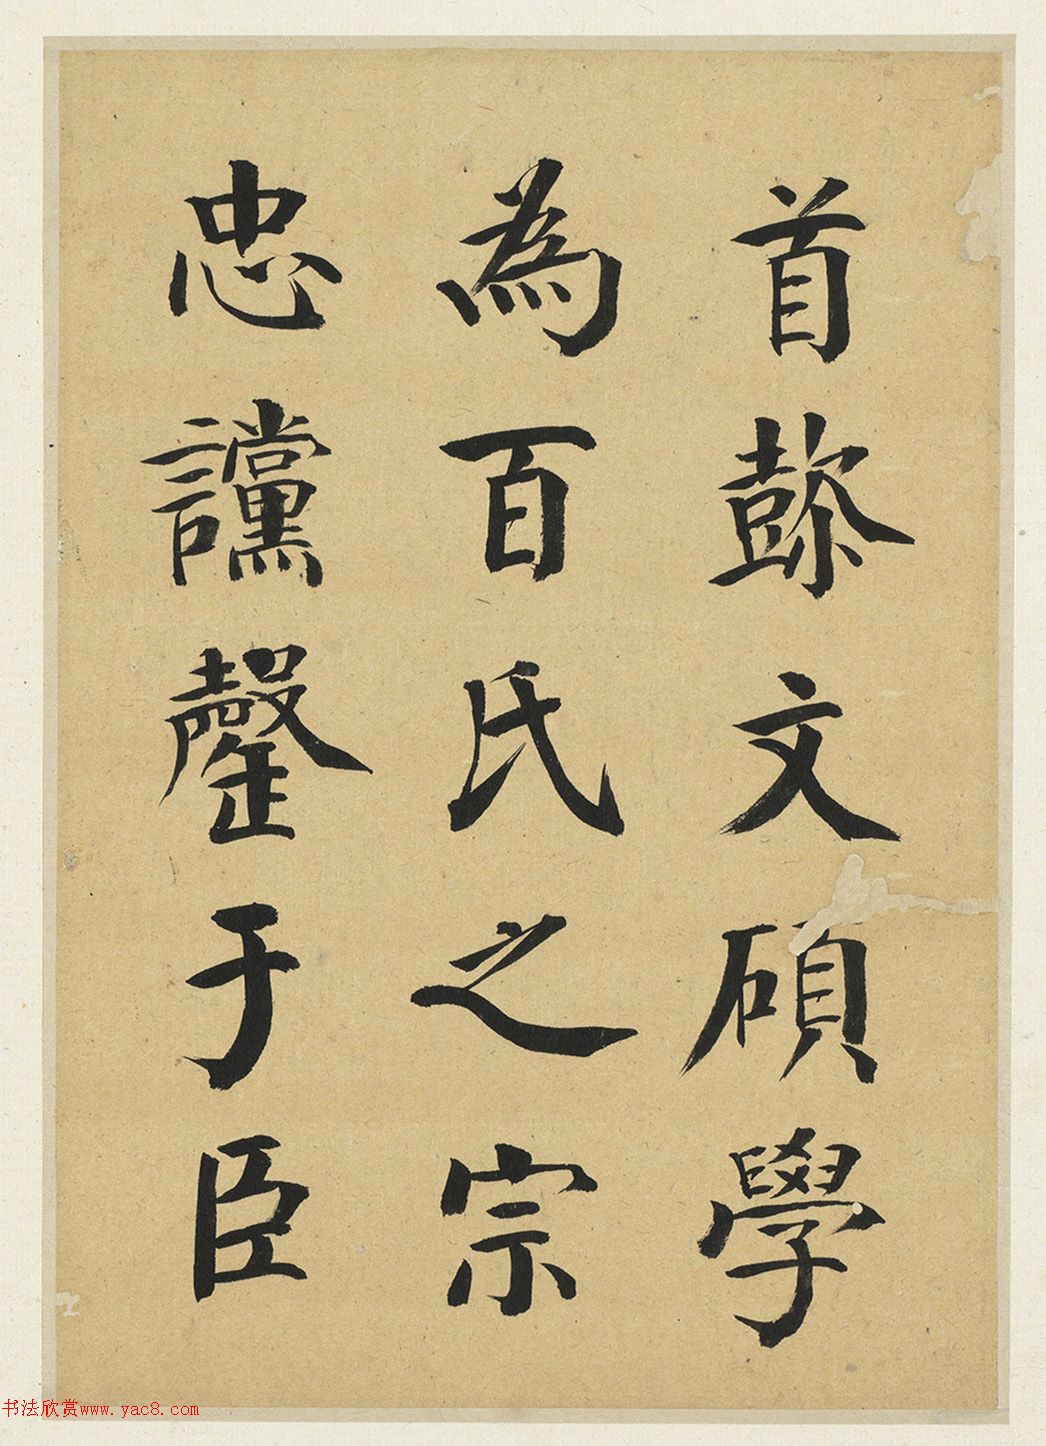 首懿文碩學
為百氏之宗
忠讜罄于臣
书法欣赏www.yac8.com